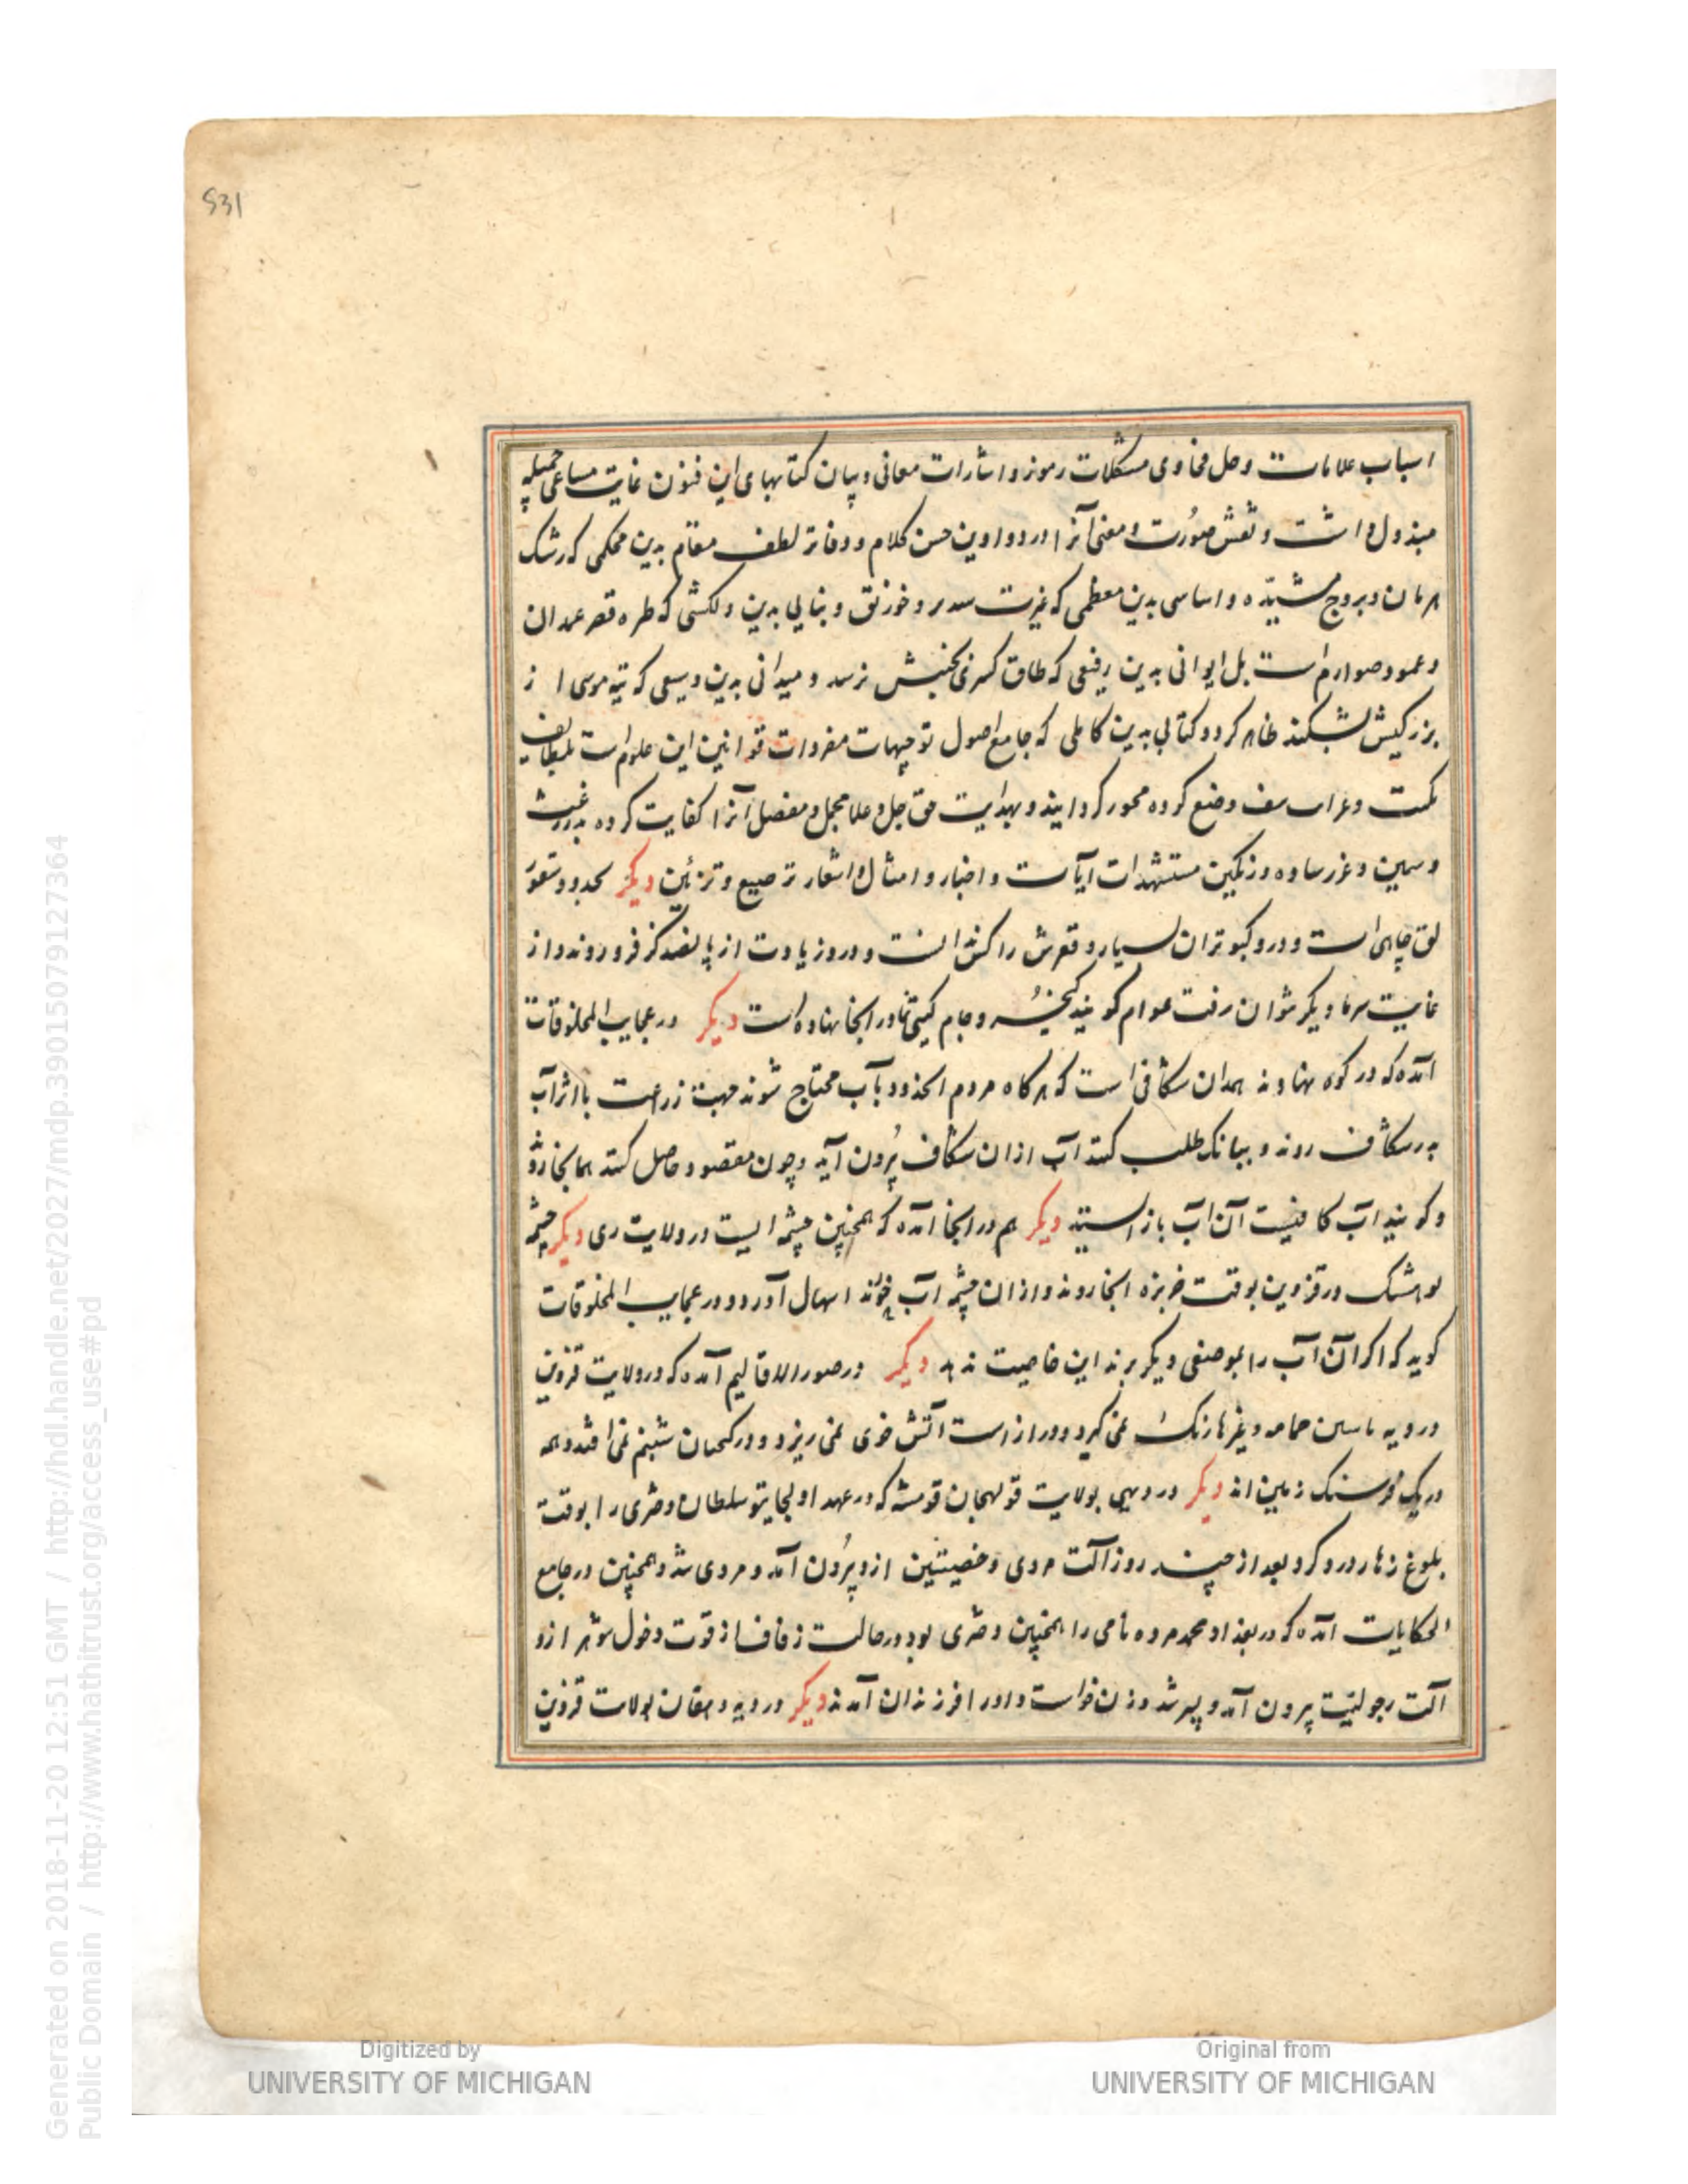 531
اسباب علامات وحل فحاوی مشکلات رموز و اشارات معانی و بیان کتابهای این فنون غایت مساعی جمیله
مبذول داشت و نقش صورت و معنی آنرا در دواوین حسن کلام و دفاتر لطف مقام بدین محکمی که رشک
هرمان و بروج مشیّده و اساسی بدین معظمی که غیرت سدیر و خورنق و بنایی بدین دلکشی که طره قصر غمدان
و عمود صوارم است بل ایوانی بدین رفیعی که طاق کسری بجنبش نرسد و میدانی بدین وسیعی که تیه موسی از
بزرکیش بشکند ظاهر کرد و کتابی بدین کاملی که جامع اصول توجیهات مفردات قوانین این علوم است بلطایف
نکت و وضع کرده محرر کردانیند و بهدایت حق جل و علا مجمل و مفصل آنرا کفایت کرده بدرر
و سمین و غرر ساده و رنکین مستشهدات آیات و اخبار و امثال و اشعار ترصیع و تزئین دیکر بحدود
چاهی است و درو کبوتران بسیار و قعرش را کش النست و درو زیادت از پانصد کز فرو روند و از
غایت سرما دیکر نتوان رفت عوام کویند کیخسرو جام کیتی نما در انجا نهاده است دیکر در عجایب المخلوقات
آمده که در کوه نهاوند همدان شکافی است که هرکاه مردم انحدود بآب محتاج شوند جهت زراعت یا اثر آب
بدر شکاف روند و ببانک طلب کنند آب ازان شکاف بیرون آید و چون مقصود حاصل کنند همانجا روند
و کویند آب کافیست آن آب باز استد دیکر هم در انجا آمده که همچنین چشمه ایست در ولایت ری دیکر چشمه
در قزوین بوقت خربزه انجا روند و ازان چشمه آب خورند اسهال آورد و در عجایب المخلوقات
کوید که اکر آن آب را بموضعی دیکر برند این خاصیت ندهد دیکر در صور الاقالیم آمده که در ولایت قزوین
در دیه جامه و غیرها رنک نمی کیرد و در است آتش خوی نمی ریزد و در شبنم نمی افتد و همه
در یک فرسنک زمین اند دیکر در دیهی بولایت قولنجان قومشه که در عهد اولجایتو سلطان دختری را بوقت
بلوغ زهار درد کرد بعد از چند روز آلت مردی و خصیتین ازو بیرون آمد و مردی شد و همچنین در جامع
الحکایات آمده که در بغداد محمد مرده نامی را همچنین دختری بود در حالت زفاف از قوت دخول شوهر ازو
آلت رجولیت بیرون آمد و پسر شد و زن خواست و او را فرزندان آمدند دیکر در دیه دهقان بولایت قزوین
Digitized by
UNIVERSITY OF MICHIGAN
Original from
UNIVERSITY OF MICHIGAN
Generated on 2018-11-20 12:51 GMT / http://hdl.handle.net/2027/mdp.39015079127364
Public Domain / http://www.hathitrust.org/access_use#pd